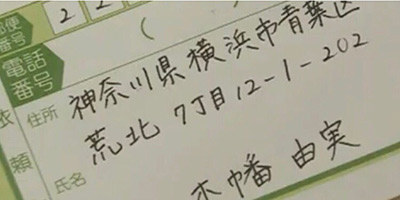 郵便番号 22
電話番号 (
依頼
住所 神奈川県横浜市青葉区
荒北 7丁目12-1-202
氏名 木幡 由実